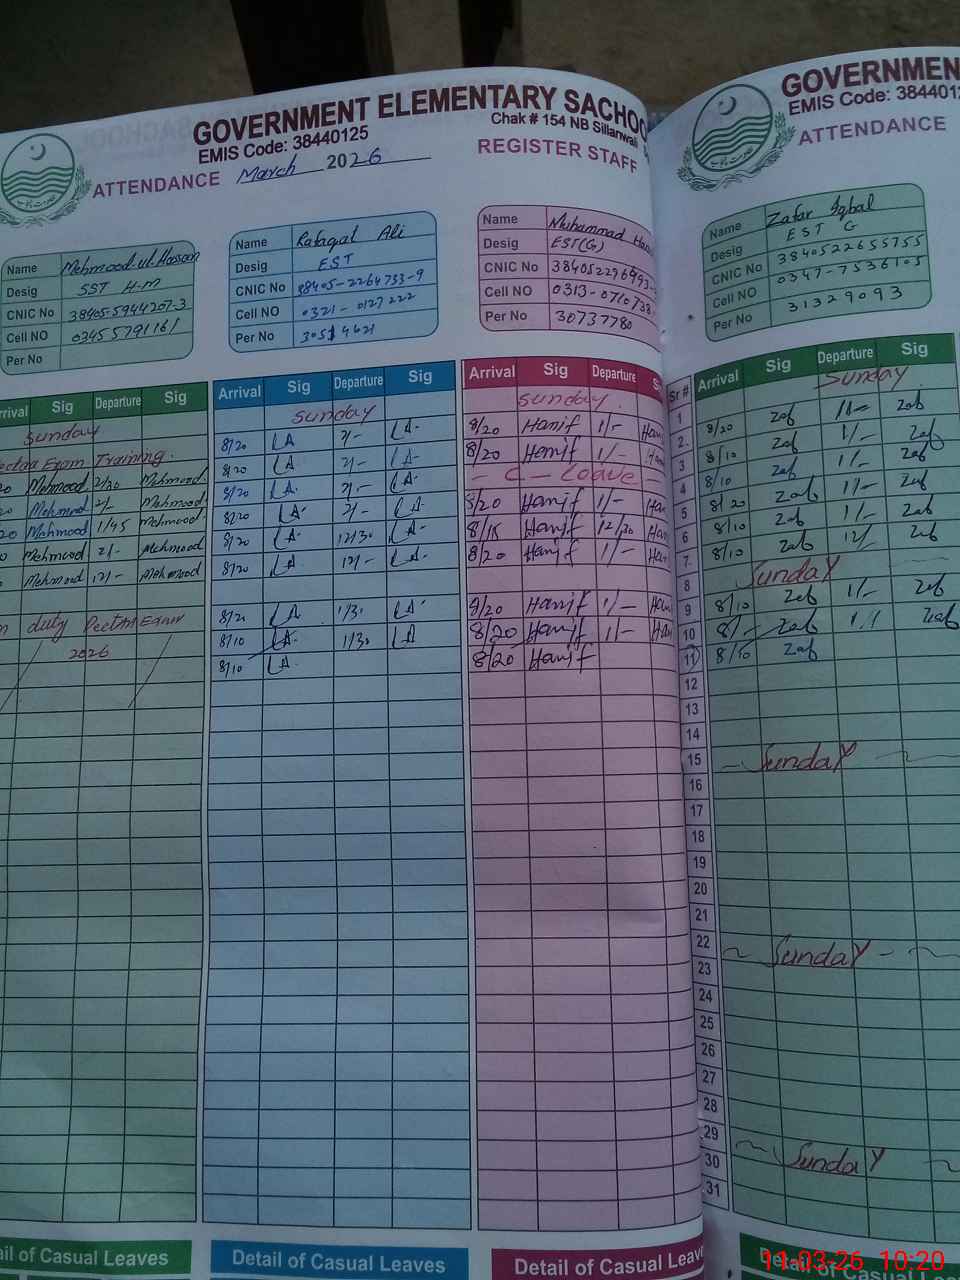 GOVERNMENT ELEMENTARY SACHOO
EMIS Code: 38440125
Chak # 154 NB Sillanwali
ATTENDANCE March 2026 REGISTER STAFF
Name Mehmood-ul-Hassan
Desig SST H-M
CNIC No 38405-5944207-3
Cell NO 03455791161
Per No
Name Rafaqat Ali
Desig EST
CNIC No 38405-2264733-9
Cell NO 0321-0127222
Per No 30514621
Name Muhammad
Desig EST(G)
CNIC No 384052296993-
Cell NO 0313-0710738
Per No 30737780
rrival Sig Departure Sig
Sunday
Exam Training.
20 Mehmood 2/20 Mehmood
Mehmood 2/- Mehmood
20 Mehmood 1/45 Mehmood
Mehmood 2/- Mehmood
Mehmood 12/- Mehmood
duty Exam
2026
Arrival Sig Departure Sig
Sunday
8/20 LA 2/- LA
8/20 LA 2/- LA
8/20 LA 2/- LA
8/20 LA 2/- LA
8/20 LA 12/30 LA
8/20 LA 12/- LA
8/20 LA 1/30 LA
8/10 LA 1/30 LA
8/10 LA
Arrival Sig Departure S
Sunday
8/20 Hanif 1/- Han
8/20 Hanif 1/- Han
- C - Leave -
8/20 Hanif 1/- Han
8/15 Hanif 12/30 Han
8/20 Hanif 1/- Han
8/20 Hanif 1/- Han
8/20 Hanif 1/- Han
8/20 Hanif
ail of Casual Leaves
Detail of Casual Leaves
Detail of Casual Leave
GOVERNMEN
EMIS Code: 3844012
ATTENDANCE
Name Zafar Iqbal
Desig EST G
CNIC No 3840522655755
Cell NO 0347-7536105
Per No 31329093
Sr # Arrival Sig Departure Sig
1 Sunday
2. 8/20 Zaf 1/- Zaf
3 8/10 Zaf 1/- Zaf
4 8/10 Zaf 1/- Zaf
5 8/20 Zaf 1/- Zaf
6 8/10 Zaf 1/- Zaf
7. 8/10 Zaf 12/- Zaf
8 Sunday
9 8/10 Zaf 1/- Zaf
10 8/- Zaf 1/1 Zaf
11 8/10 Zaf
12
13
14
15 Sunday
16
17
18
19
20
21
22 Sunday
23
24
25
26
27
28
29 Sunday
30
31
11-03-26 10:20